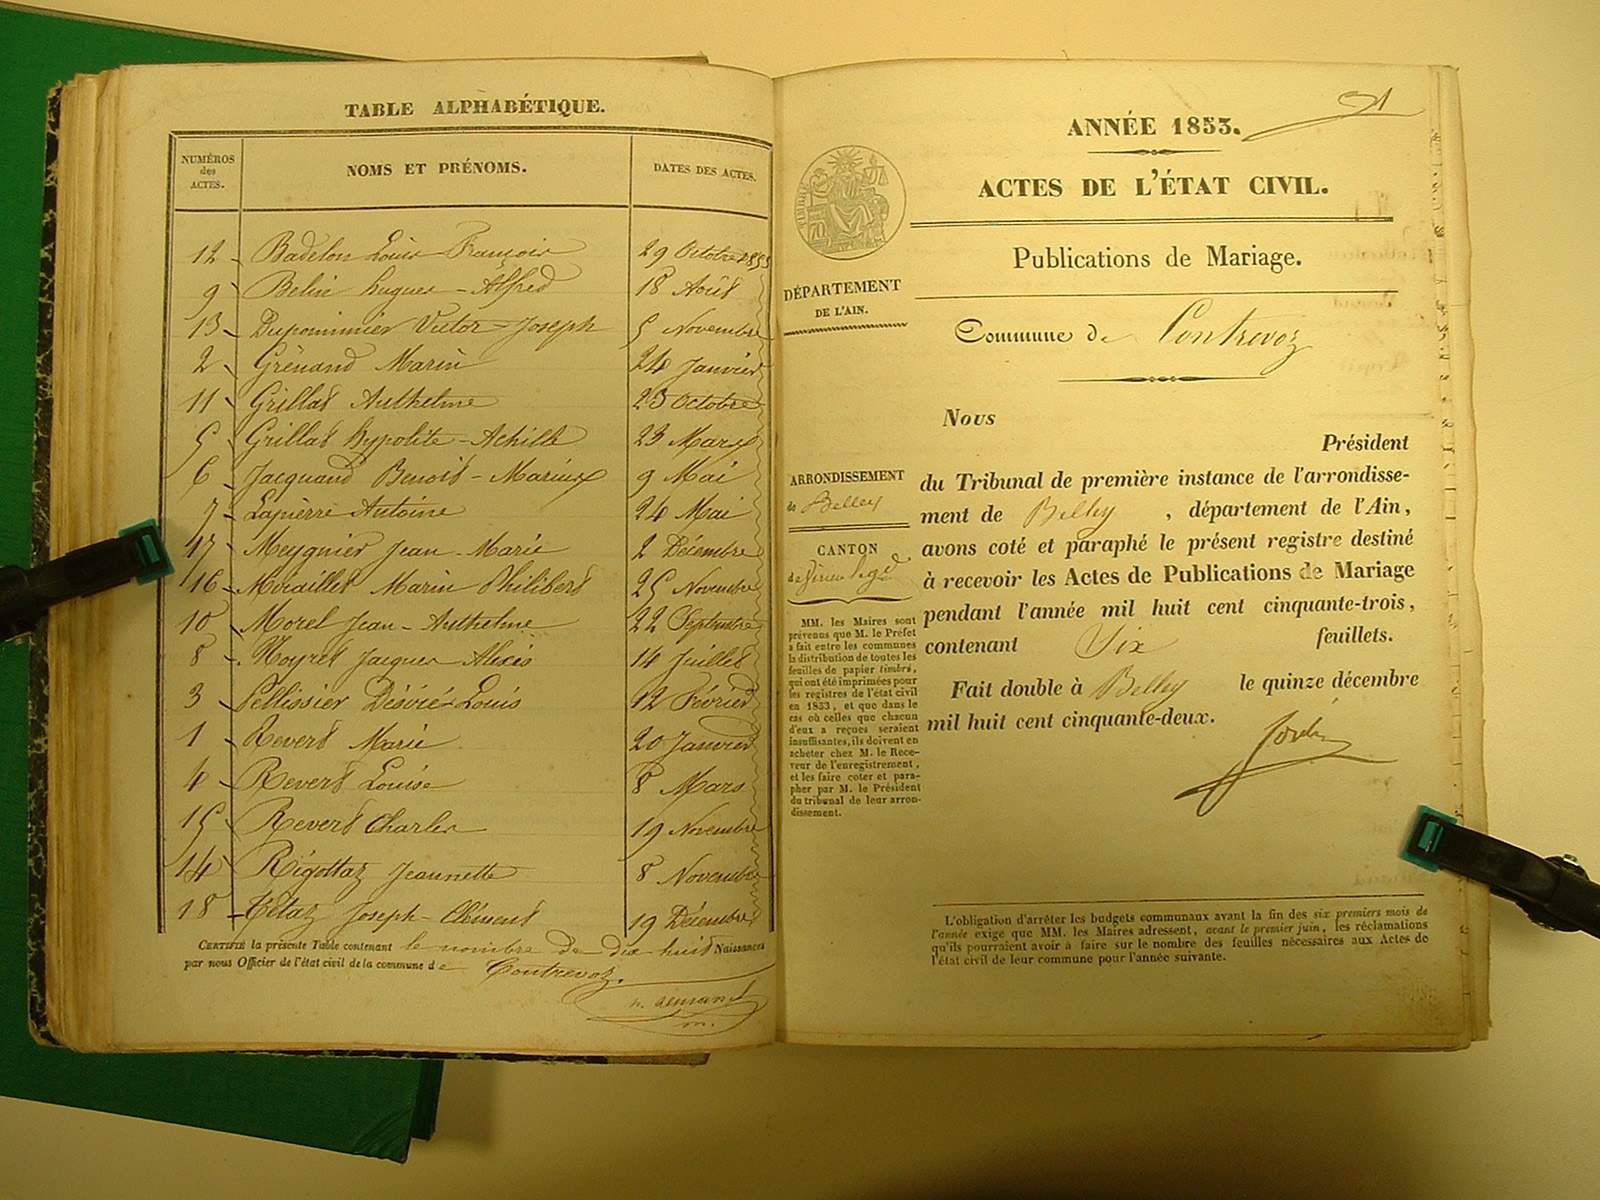 TABLE ALPHABÉTIQUE.
NUMÉROS des ACTES.
NOMS ET PRÉNOMS.
DATES DES ACTES.
12 Badelon Louis François 29 Octobre 1853
9 Belin hugues - Alfred 18 Août
13 Dupommier Victor - Joseph 5 Novembre
2 Grénand Marin 24 Janvier
11 Grillat Anthelme 23 Octobre
5 Grillat hypolite - Achille 23 Mars
6 Jacquand Benoit - Marius 9 Mai
7 Lapierre Antoine 24 Mai
17 Meygnier Jean - Marie 2 Décembre
16 Miraillet Marin Philibert 25 Novembre
10 Morel Jean - Anthelme 22 Septembre
8 Noyret Jacques Alexis 14 Juillet
3 Pellissier Désiré Louis 12 Février
1 Revert Marie 20 Janvier
4 Revert Louise 8 Mars
15 Revert Charles 19 Novembre
14 Rigottaz Jeannette 8 Novembre
18 Tétaz Joseph - Clément 19 Décembre
CERTIFIÉ la présente Table contenant le nombre de dix huit Naissances
par nous Officier de l'état civil de la commune de Contrevoz.
ANNÉE 1853.
ACTES DE L'ÉTAT CIVIL.
Publications de Mariage.
DÉPARTEMENT
DE L'AIN.
Commune de Contrevoz
ARRONDISSEMENT
de Belley
CANTON
de
MM. les Maires sont
prévenus que M. le Préfet
a fait entre les communes
la distribution de toutes les
feuilles de papier timbré,
qui ont été imprimées pour
les registres de l'état civil
en 1853, et que dans le
cas où celles que chacun
d'eux a reçues seraient
insuffisantes, ils doivent en
acheter chez M. le Rece-
veur de l'enregistrement,
et les faire coter et para-
pher par M. le Président
du tribunal de leur arron-
dissement.
Nous
Président
du Tribunal de première instance de l'arrondisse-
ment de Belley , département de l'Ain,
avons coté et paraphé le présent registre destiné
à recevoir les Actes de Publications de Mariage
pendant l'année mil huit cent cinquante-trois,
contenant Six feuillets.
Fait double à Belley le quinze décembre
mil huit cent cinquante-deux.
L'obligation d'arrêter les budgets communaux avant la fin des six premiers mois de
l'année exige que MM. les Maires adressent, avant le premier juin, les réclamations
qu'ils pourraient avoir à faire sur le nombre des feuilles nécessaires aux Actes de
l'état civil de leur commune pour l'année suivante.